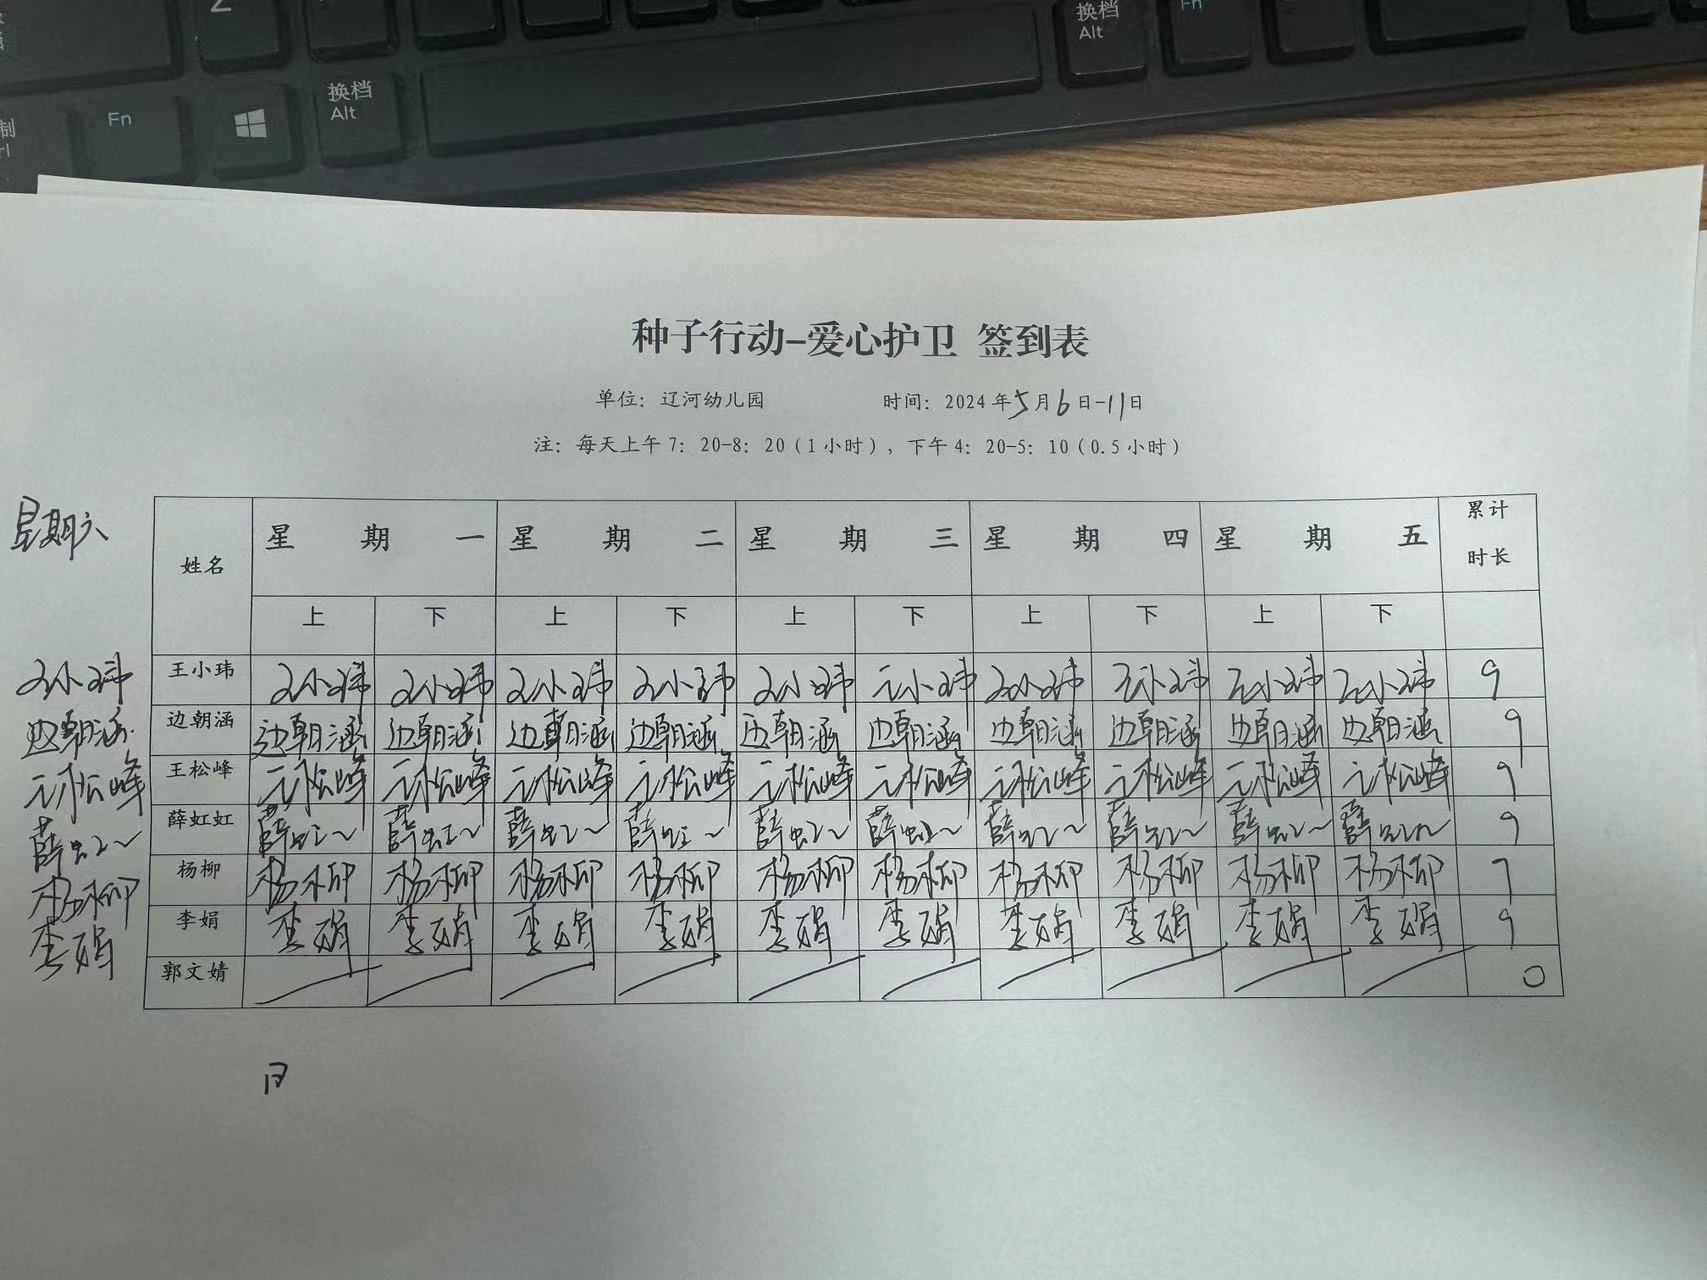 换档
Alt
Fn
Fn
换档
Alt
种子行动-爱心护卫 签到表
单位：辽河幼儿园 时间：2024年5月6日-11日
注：每天上午7：20-8：20（1小时），下午4：20-5：10（0.5小时）
星期六
姓名 星期一 星期二 星期三 星期四 星期五 累计时长
上 下 上 下 上 下 上 下 上 下
王小玮 王小玮 王小玮 王小玮 王小玮 王小玮 王小玮 王小玮 王小玮 王小玮 王小玮 王小玮 9
边朝涵 边朝涵 边朝涵 边朝涵 边朝涵 边朝涵 边朝涵 边朝涵 边朝涵 边朝涵 边朝涵 边朝涵 9
王松峰 王松峰 王松峰 王松峰 王松峰 王松峰 王松峰 王松峰 王松峰 王松峰 王松峰 王松峰 9
薛虹~ 薛虹虹 薛虹~ 薛虹~ 薛虹~ 薛虹~ 薛虹~ 薛虹~ 薛虹~ 薛虹~ 薛虹~ 薛虹~ 9
杨柳 杨柳 杨柳 杨柳 杨柳 杨柳 杨柳 杨柳 杨柳 杨柳 杨柳 杨柳
李娟 李娟 李娟 李娟 李娟 李娟 李娟 李娟 李娟 李娟 李娟 李娟 9
郭文婧 0